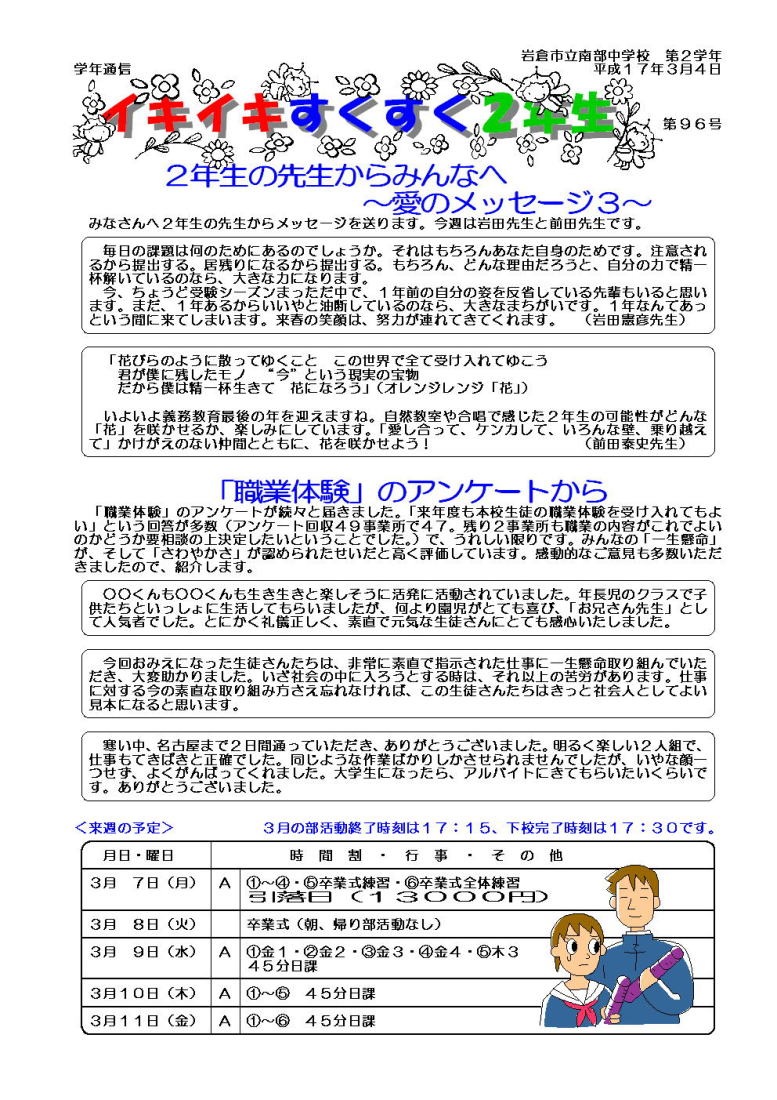 岩倉市立南部中学校　第２学年
学年通信
平成１７年３月４日
イキイキすくすく２年生
第９６号
２年生の先生からみんなへ
～愛のメッセージ３～
みなさんへ２年生の先生からメッセージを送ります。今週は岩田先生と前田先生です。
毎日の課題は何のためにあるのでしょうか。それはもちろんあなた自身のためです。注意され
るから提出する。居残りになるから提出する。もちろん、どんな理由だろうと、自分の力で精一
杯解いているのなら、大きな力になります。
今、ちょうど受験シーズンまっただ中で、１年前の自分の姿を反省している先輩もいると思い
ます。まだ、１年あるからいいやと油断しているのなら、大きなまちがいです。１年なんてあっ
という間に来てしまいます。来春の笑顔は、努力が連れてきてくれます。　（岩田憲彦先生）
「花びらのように散ってゆくこと　この世界で全て受け入れてゆこう
君が僕に残したモノ　“今”という現実の宝物
だから僕は精一杯生きて　花になろう」（オレンジレンジ「花」）
いよいよ義務教育最後の年を迎えますね。自然教室や合唱で感じた２年生の可能性がどんな
「花」を咲かせるか、楽しみにしています。「愛し合って、ケンカして、いろんな壁、乗り越え
て」かけがえのない仲間とともに、花を咲かせよう！　（前田泰史先生）
「職業体験」のアンケートから
「職業体験」のアンケートが続々と届きました。「来年度も本校生徒の職業体験を受け入れてもよ
い」という回答が多数（アンケート回収４９事業所で４７。残り２事業所も職業の内容がこれでよい
のかどうか要相談の上決定したいということでした。）で、うれしい限りです。みんなの「一生懸命」
が、そして「さわやかさ」が認められたせいだと高く評価しています。感動的なご意見も多数いただ
きましたので、紹介します。
○○くんも○○くんも生き生きと楽しそうに活発に活動されていました。年長児のクラスで子
供たちといっしょに生活してもらいましたが、何より園児がとても喜び、「お兄さん先生」とし
て人気者でした。とにかく礼儀正しく、素直で元気な生徒さんにとても感心いたしました。
今回おみえになった生徒さんたちは、非常に素直で指示された仕事に一生懸命取り組んでいた
だき、大変助かりました。いざ社会の中に入ろうとする時は、それ以上の苦労があります。仕事
に対する今の素直な取り組み方さえ忘れなければ、この生徒さんたちはきっと社会人としてよい
見本になると思います。
寒い中、名古屋まで２日間通っていただき、ありがとうございました。明るく楽しい２人組で、
仕事もてきぱきと正確でした。同じような作業ばかりしかさせられませんでしたが、いやな顔一
つせず、よくがんばってくれました。大学生になったら、アルバイトにきてもらいたいくらいで
す。ありがとうございました。
＜来週の予定＞　３月の部活動終了時刻は１７：１５、下校完了時刻は１７：３０です。
月日・曜日　時　間　割　・　行　事　・　そ　の　他
３月　７日（月）　Ａ　①～④・⑤卒業式練習・⑥卒業式全体練習
引落日（１３０００円）
３月　８日（火）　卒業式（朝、帰り部活動なし）
３月　９日（水）　Ａ　①金１・②金２・③金３・④金４・⑤木３
４５分日課
３月１０日（木）　Ａ　①～⑤　４５分日課
３月１１日（金）　Ａ　①～⑥　４５分日課